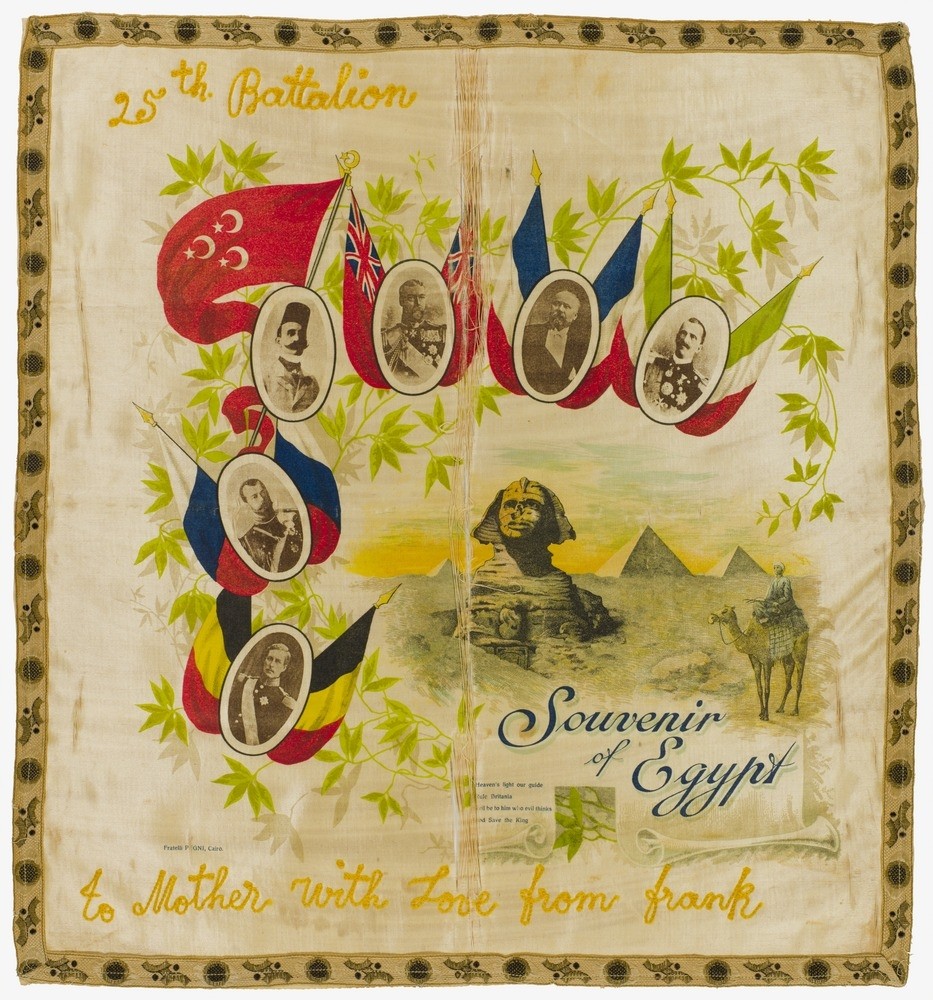 25th. Battalion
Souvenir
of Egypt
Heaven's light our guide
Rule Britania
to him who evil thinks
Save the King
Fratelli
Cairo
to Mother with Love from frank